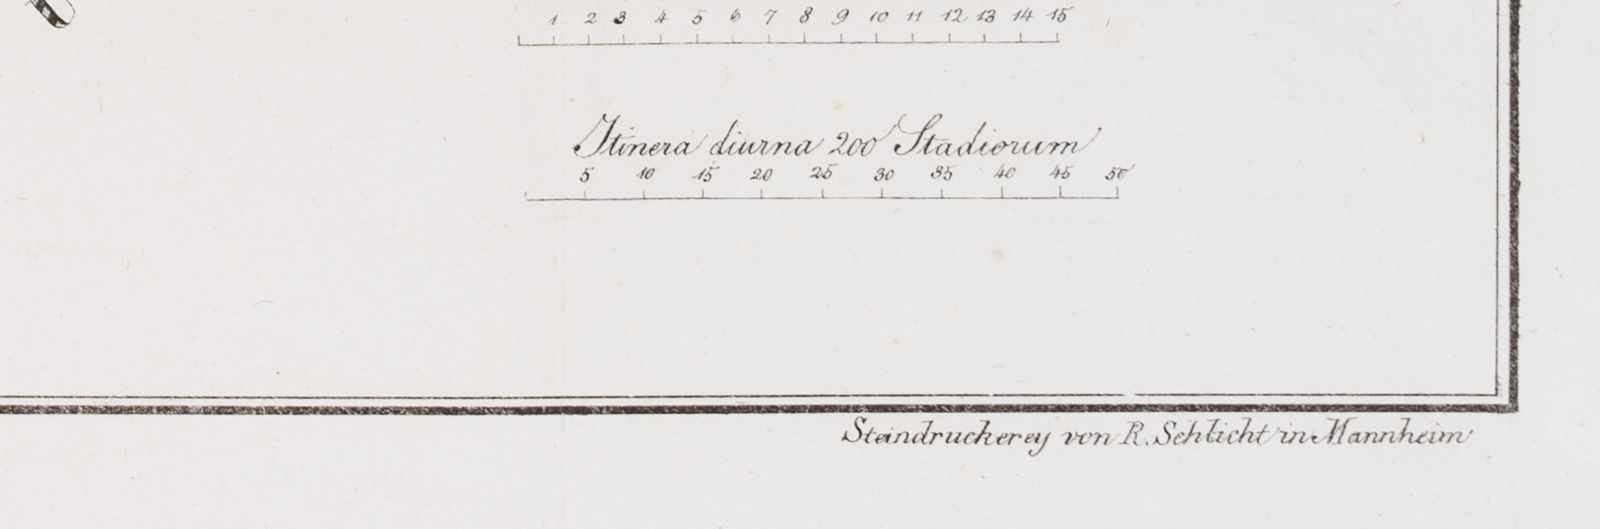 1 2 3 4 5 6 7 8 9 10 11 12 13 14 15
Itinera diurna 200 Stadiorum
5 10 15 20 25 30 35 40 45 50
Steindruckerey von R. Schlicht in Mannheim